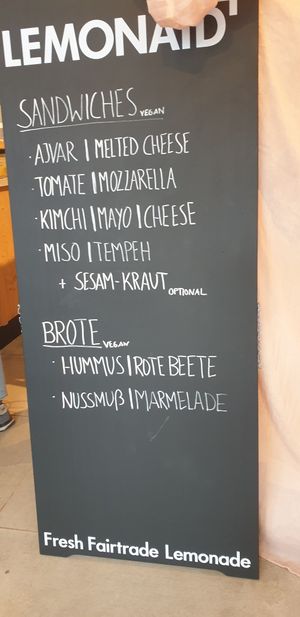 LEMONAID+
SANDWICHES VEGAN
· AJVAR | MELTED CHEESE
· TOMATE | MOZZARELLA
· KIMCHI | MAYO | CHEESE
· MISO | TEMPEH
+ SESAM-KRAUT OPTIONAL
BROTE VEGAN
· HUMMUS | ROTE BEETE
· NUSSMUß | MARMELADE
Fresh Fairtrade Lemonade